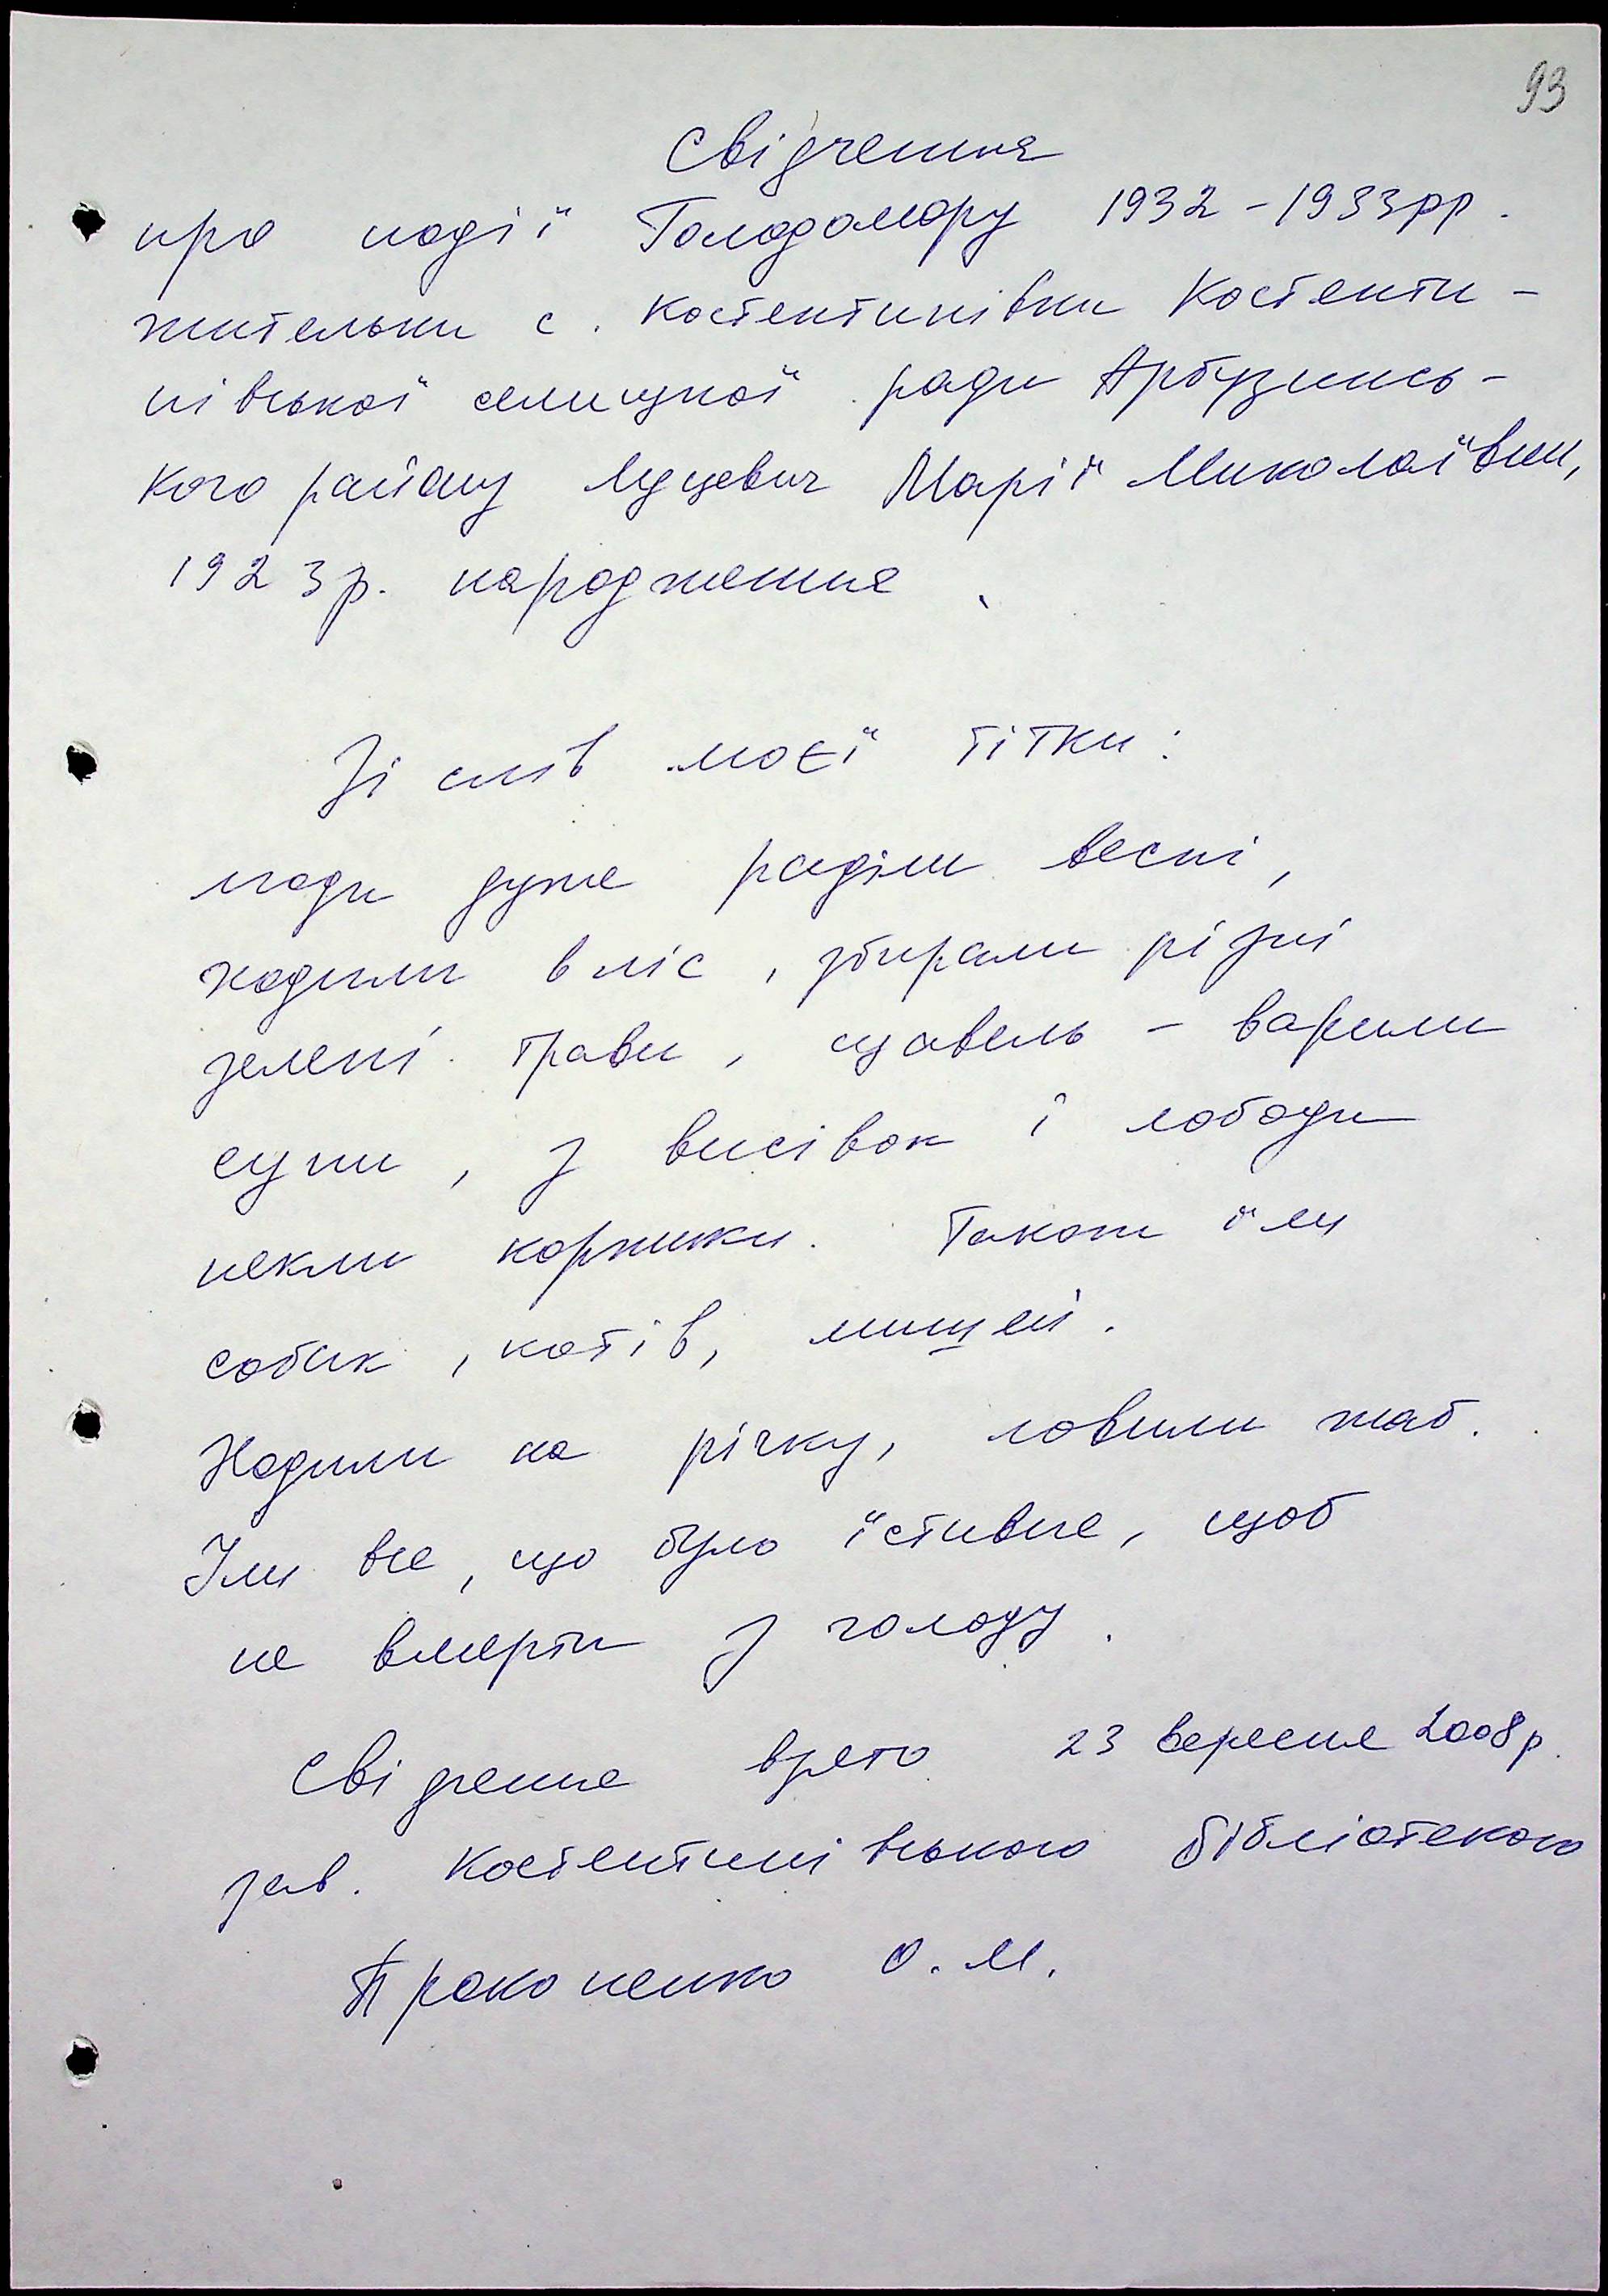 93
Свідчення
про події Голодомору 1932-1933рр.
жительки с. Костянтинівки Костянти-
нівської селищної ради Арбузинсь-
кого району Луцевич Марії Миколаївни,
1923р. народження.
Зі слів моєї тітки:
люди дуже раділи весні,
ходили в ліс, збирали різні
зелені трави, щавель - варили
супи, з висівок і лободи
пекли коржики. Також їли
собак, котів, мишей.
Ходили на річку, ловили жаб.
Їли все, що було їстивне, щоб
не вмерти з голоду.
Свідчення взято 23 вересня 2008р.
зав. Костянтинівською бібліотекою
Прокопенко О.М.